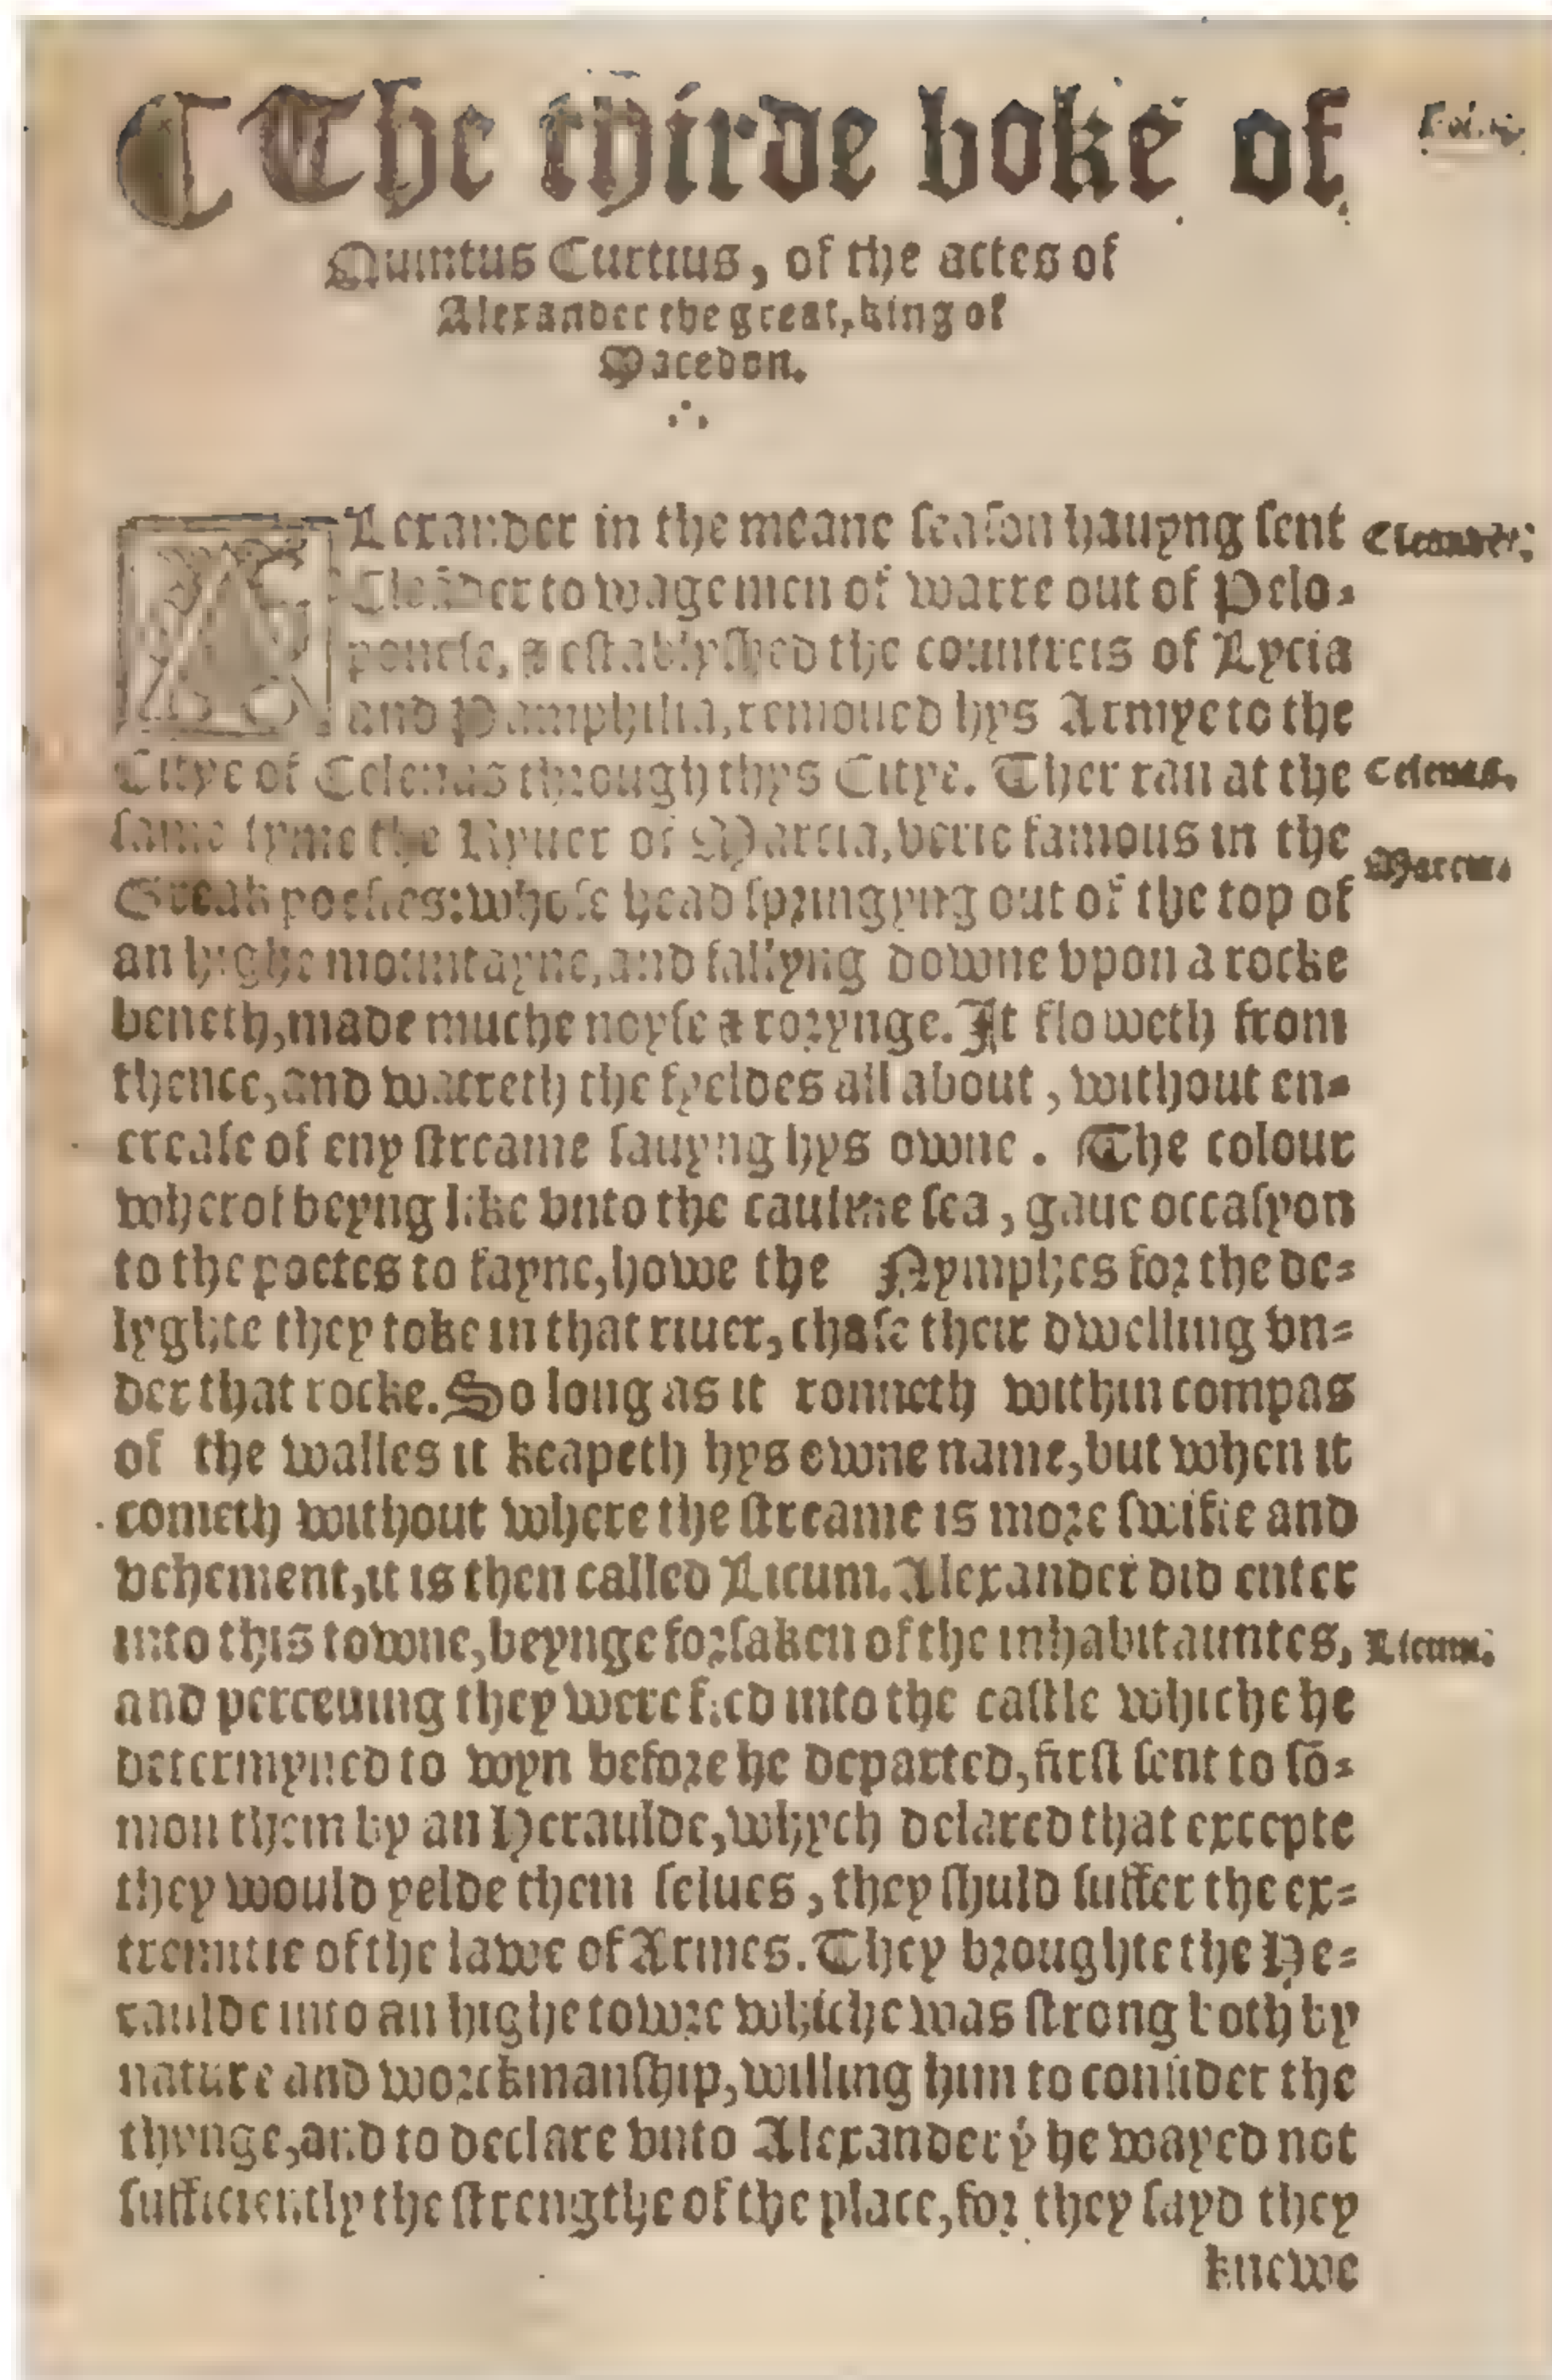 ¶The thirde boke of
Quintus Curtius, of the actes of
Alexander the great, king of
Macedon.
ALexander in the meane season hauyng sent
Cleander.
Cleāder to wage men of warre out of Pelo-
ponese, & establyshed the countreis of Lycia
and Pamphilia, remoued hys Armye to the
Citye of Celenas through thys Citye. Ther ran at the
Celenas.
same tyme the Ryuer of Marcia, verie famous in the
Marcia.
Greak poesies: whose head springyng out of the top of
an highe mountayne, and fallyng downe vpon a rocke
beneth, made muche noyse & rorynge. It floweth from
thence, and watreth the fyeldes all about, without en-
crease of eny streame sauyng hys owne. The colour
wherof beyng like vnto the caulme sea, gaue occasyon
to the poetes to fayne, howe the Nymphes for the de-
lyghte they toke in that riuer, chase their dwelling vn-
der that rocke. So long as it ronneth within compas
of the walles it keapeth hys owne name, but when it
cometh without where the streame is more swifte and
vehement, it is then called Licum. Alexander did enter
into this towne, beynge forsaken of the inhabitauntes,
Licum.
and perceuing they were fled into the castle whiche he
determyned to wyn before he departed, first sent to sō-
mon them by an Heraulde, whych declared that excepte
they would yelde them selues, they shuld suffer the ex-
tremitie of the lawe of Armes. They broughte the He-
raulde into an highe towre whiche was strong both by
nature and worckmanship, willing him to consider the
thynge, and to declare vnto Alexander yͭ he wayed not
sufficiently the strengthe of the place, for they sayd they
knewe